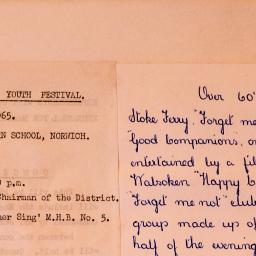 YOUTH FESTIVAL.
965.
N SCHOOL, NORWICH.
p.m.
Chairman of the District.
her Sing' M.H.B. No. 5.
Over 60'
Stoke Ferry, "Forget me
"Good Companions, or
entertained by a fil
Watsoken "Happy b
"Forget me not" club
group made up of
half of the evening